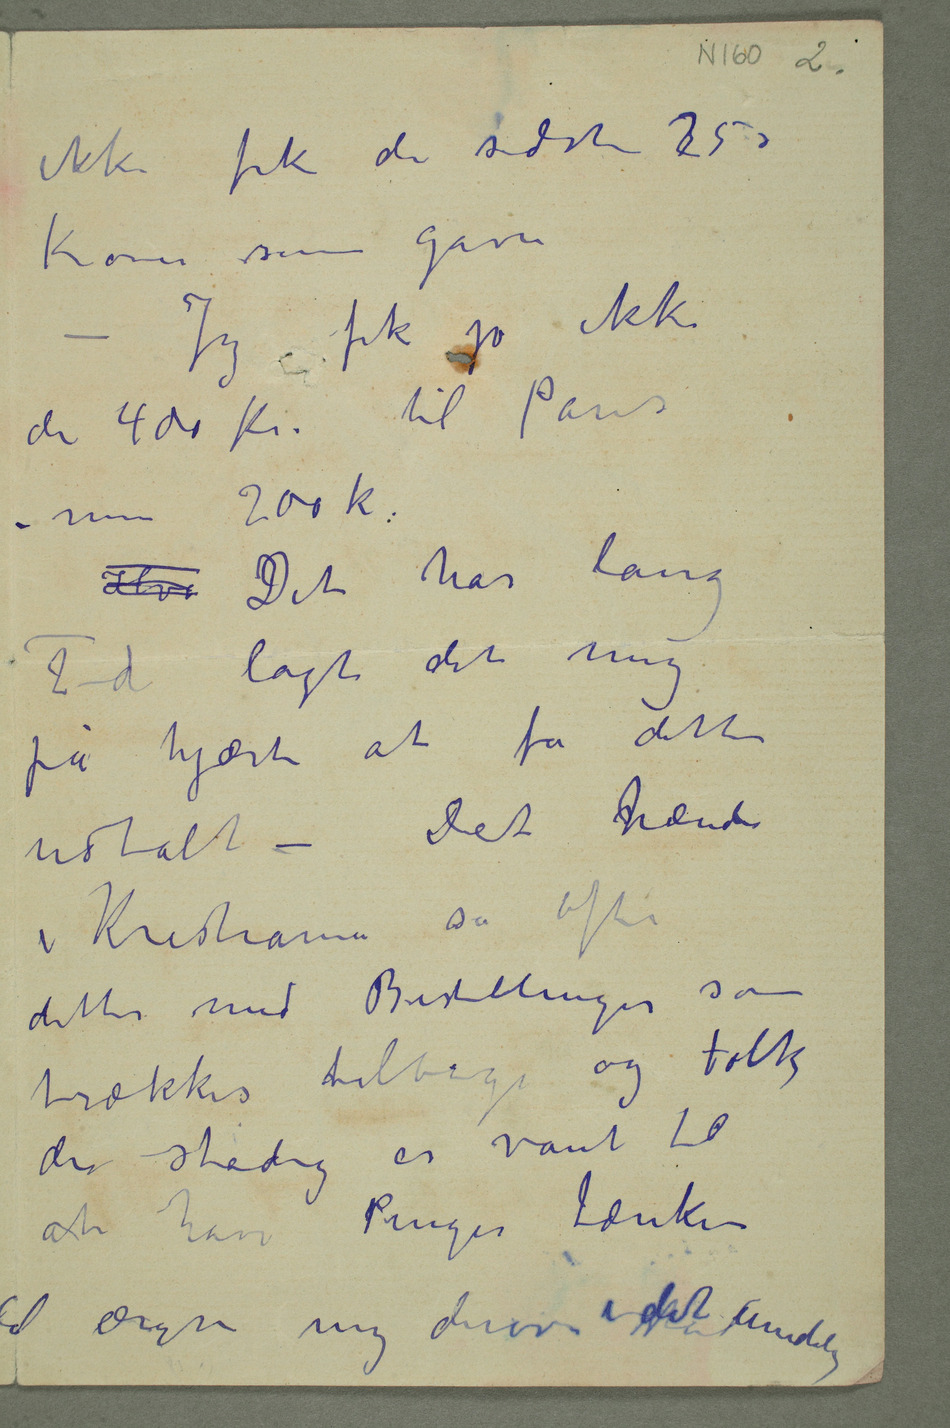 N160 2.
ikke fik de sidste 250
Kroner som gave
– Jeg fik jo ikke
de 400 Kr. til Paris
- men 200 k.
Det har lang
Tid lagt det mig
på hjærte at få dette
udtalt – Det hænder
i Kristiania så ofte
dette med Bestillinger som
trækkes tilbage og Folk
der stadig er vant til
at have Penger tænker
ej ærgre mig derover i det uendelig